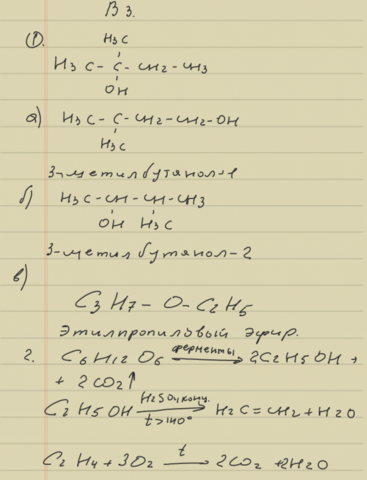 В 3.
①.
H3C
H3C - C - CH2 - CH3
OH
а) H3C - C - CH2 - CH2 - OH
H3C
3-метилбутанол-1
б) H3C - CH - CH - CH3
OH H3C
3-метилбутанол-2
в)
C3H7 - O - C2H5
Этилпропиловый эфир.
2. C6H12O6 ферменты→ 2C2H5OH +
+ 2CO2↑
C2H5OH H2SO4 конц. t>140°→ H2C=CH2 + H2O
C2H4 + 3O2 t→ 2CO2 + 2H2O